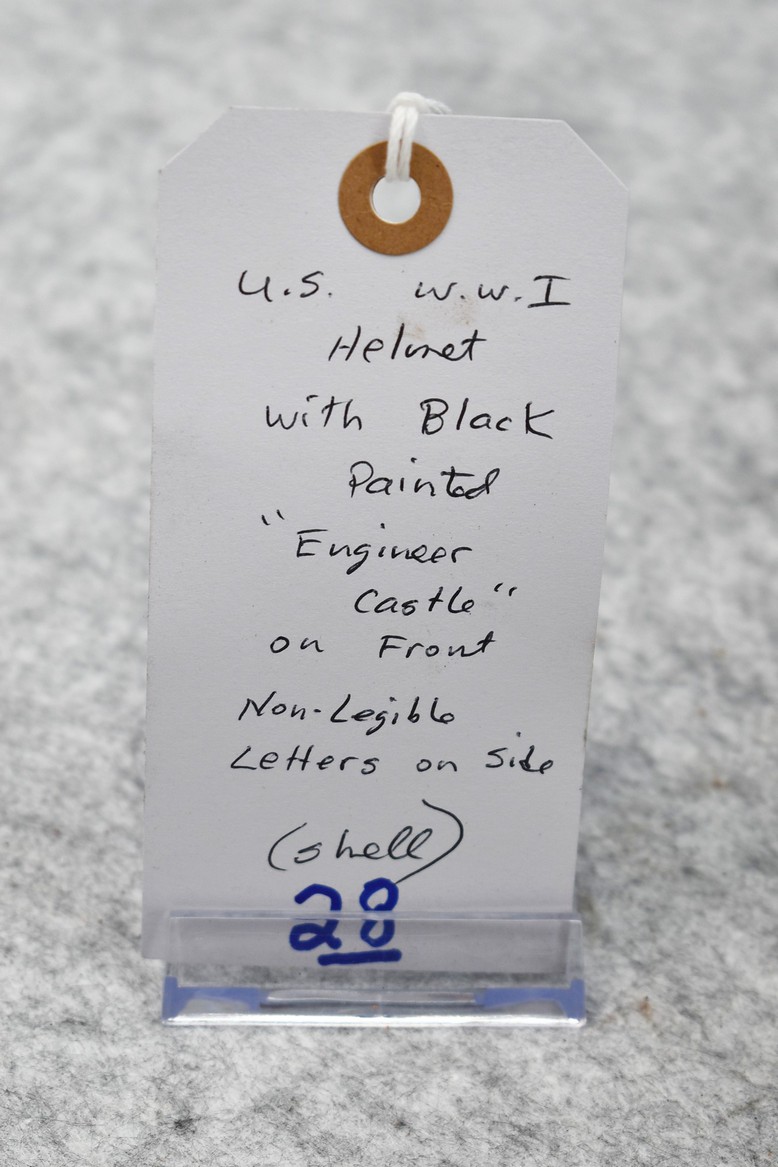 U.S. W.W.I
Helmet
with Black
Painted
"Engineer
Castle"
on Front
Non-Legible
Letters on Side
(shell)
28